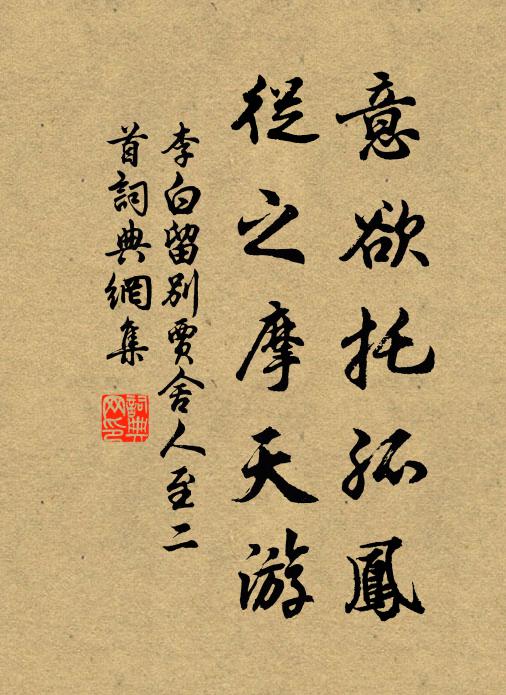 意欲托孤鳳
從之摩天游
李白留別賈舍人至二
首詞典網集
詞典网印